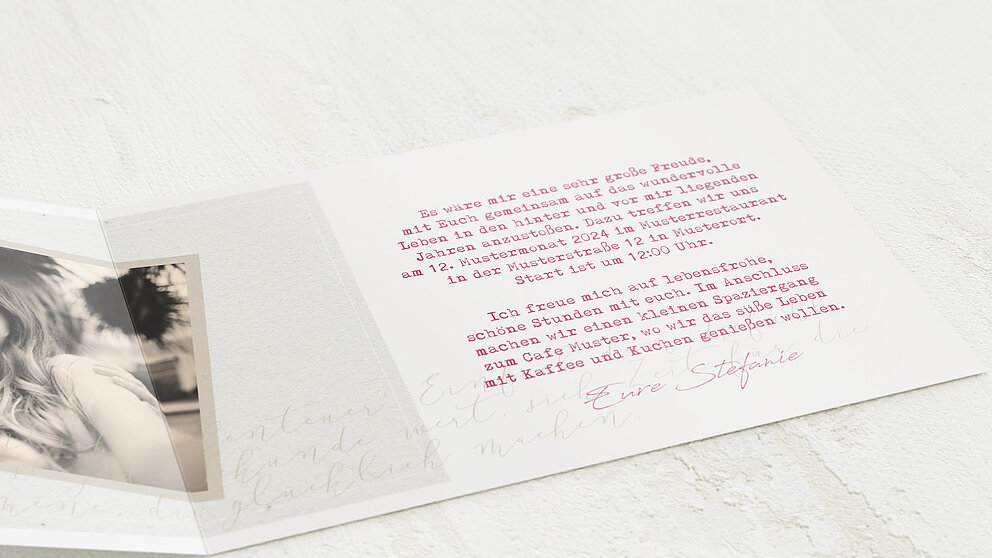 Es wäre mir eine sehr große Freude,
mit Euch gemeinsam auf das wundervolle
Leben in den hinter und vor mir liegenden
Jahren anzustoßen. Dazu treffen wir uns
am 12. Mustermonat 2024 im Musterrestaurant
in der Musterstraße 12 in Musterort.
Start ist um 12:00 Uhr.
Ich freue mich auf lebensfrohe,
schöne Stunden mit euch. Im Anschluss
machen wir einen kleinen Spaziergang
zum Cafe Muster, wo wir das süße Leben
mit Kaffee und Kuchen genießen wollen.
Eure Stefanie
die
kunde wert, sich Zeit
glücklich machen.